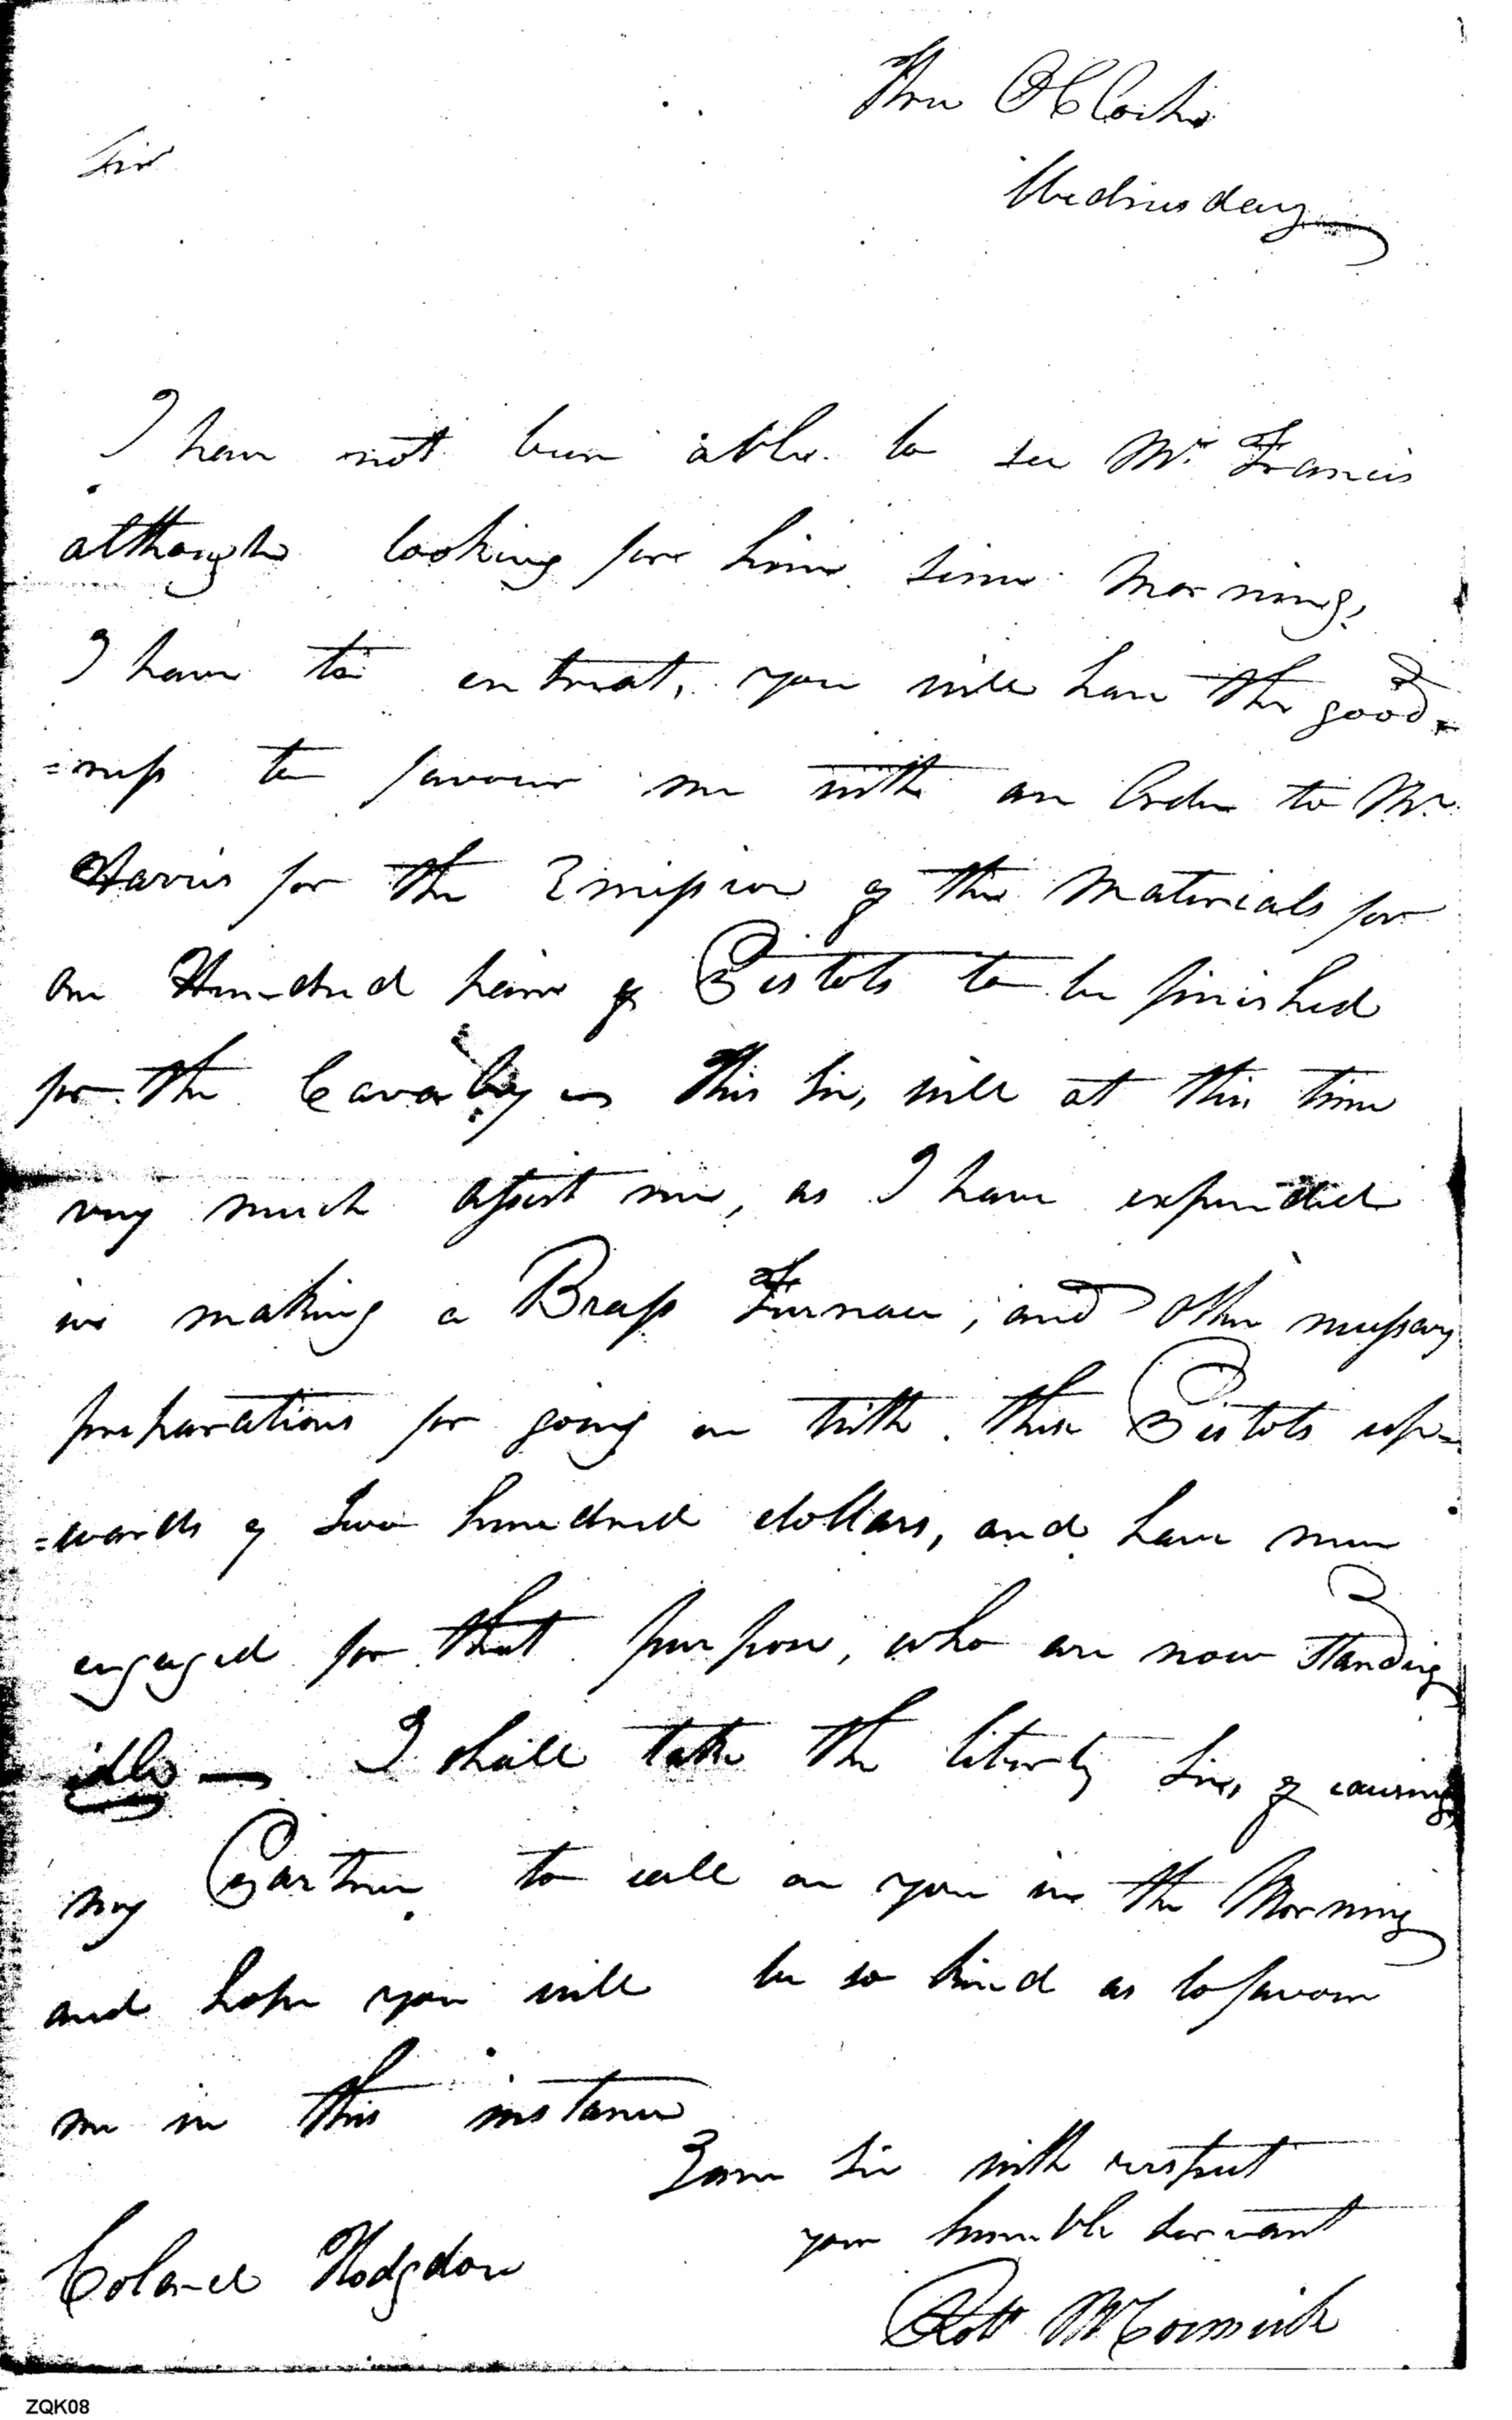 Three O Clock
Wednesday
Sir
I have not been able to see Mr. Francis
although looking for him since Morning,
I have to entreat, you will have the good=
=ness to favour me with an Order to Mr.
Harris for the Emission of the Materials for
one Hundred pair of Pistols to be finished
for the Cavalry — This Sir, will at this time
very much assist me, as I have expended
in making a Brass Furnace, and other necessary
preparations for going on with these Pistols up=
=wards of Two hundred dollars, and have men
engaged for that purpose, who are now Standing
idle — I shall take the liberty Sir, of causing
my Partner to call on you in the Morning
and hope you will be so kind as to favour
me in this instance
I am Sir with respect
your humble Servant
Robt McCormick
Colonel Hodgdon
ZQK08